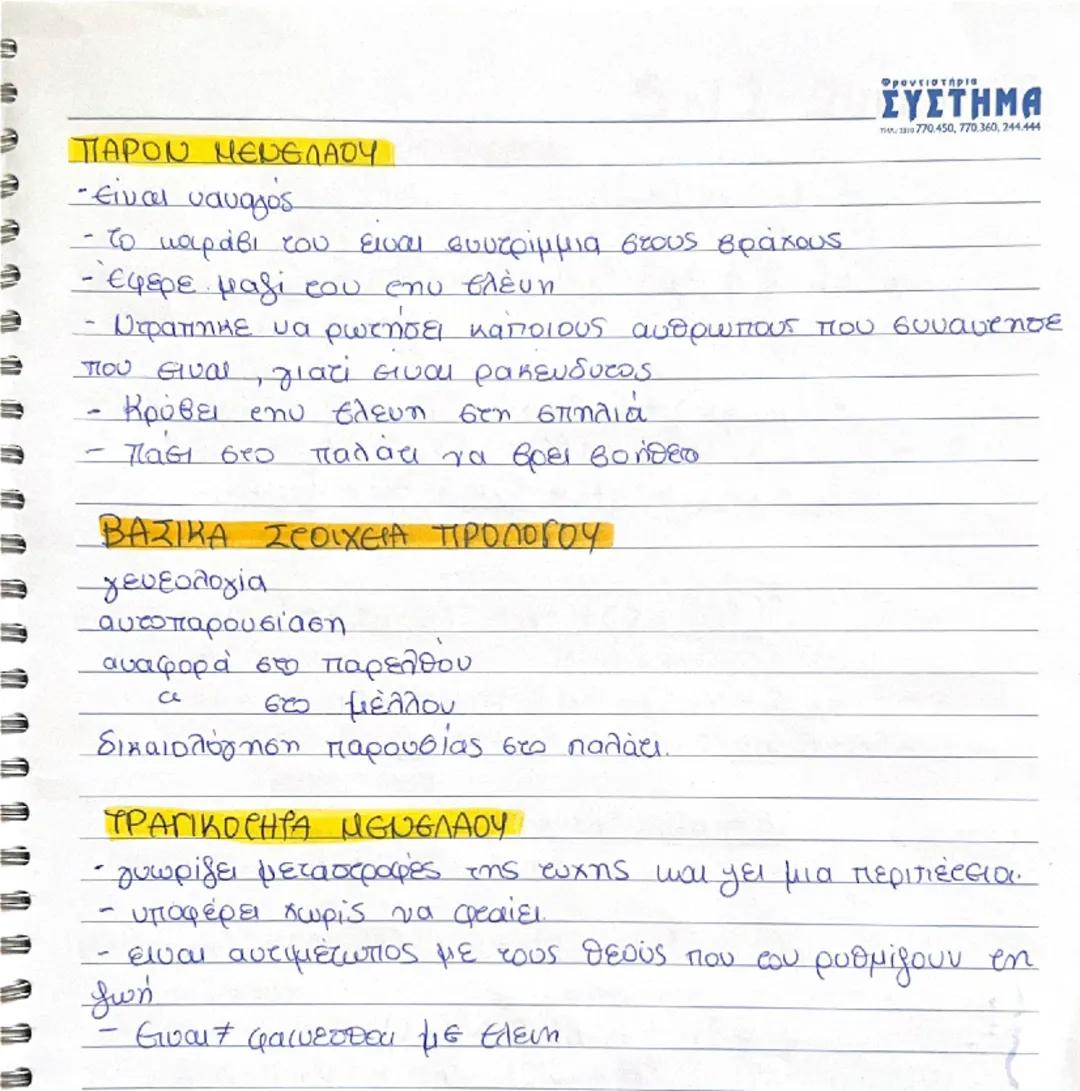 Φροντιστήρια
ΣΥΣΤΗΜΑ
ΤΗΛ.: 2310 770.450, 770.360, 244.444
ΠΑΡΟΝ ΜΕΝΕΛΑΟΥ
- Είναι ναυαγός
- Το καράβι του είναι συντρίμμια στους βράχους
- Έφερε μαζί του την Ελένη
- Ντράπηκε να ρωτήσει κάποιους ανθρώπους που συνάντησε
που είναι, γιατί είναι ρακένδυτος
- Κρύβει την Ελένη στη σπηλιά
- Πάει στο παλάτι να βρει βοήθεια
ΒΑΣΙΚΑ ΣΤΟΙΧΕΙΑ ΠΡΟΛΟΓΟΥ
γενεολογία
αυτοπαρουσίαση
αναφορά στο παρελθόν
" στο μέλλον
δικαιολόγηση παρουσίας στο παλάτι.
ΤΡΑΓΙΚΟΤΗΤΑ ΜΕΝΕΛΑΟΥ
- γνωρίζει μεταστροφές της τύχης και ζει μια περιπέτεια.
- υποφέρει χωρίς να φταίει.
- είναι αντιμέτωπος με τους θεούς που του ρυθμίζουν τη
ζωή
- Είναι ≠ φαίνεσθαι με Ελένη